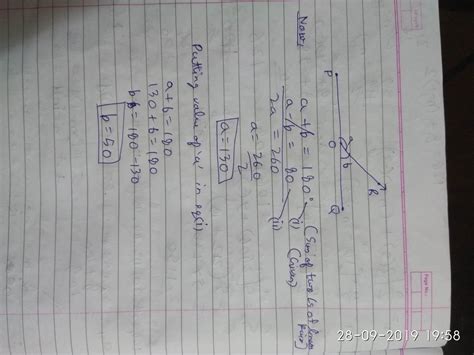 P
O
Q
R
a
b
Now,
a+b = 180° — (i) (Sum of two ∠s of linear pair)
a-b = 80 — (ii) (Given)
2a = 260
a = 260/2
a = 130
Putting value of 'a' in eq (i)
a+b = 180
130+b = 180
b = 180-130
b = 50
Page No.
28-09-2019 19:58